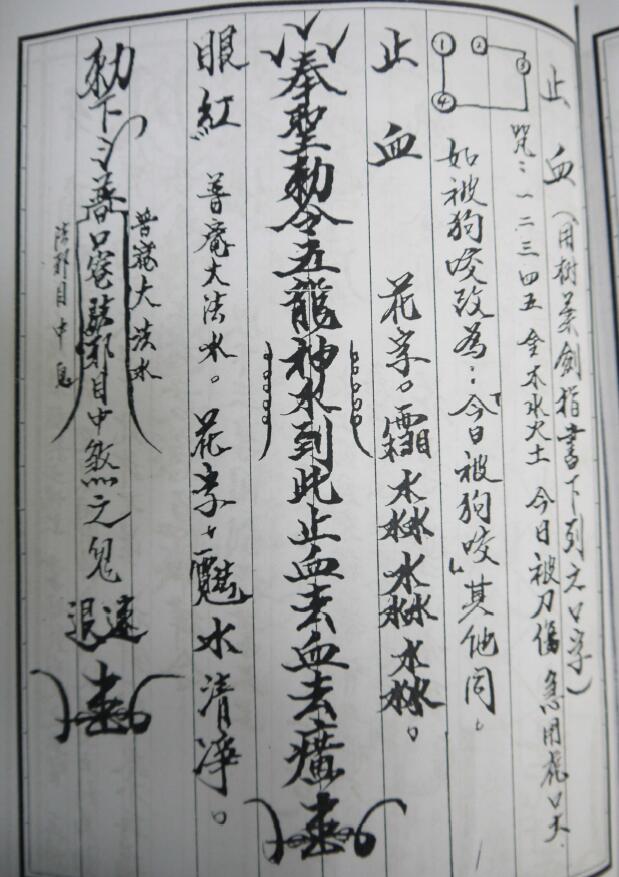 止血（用樹葉劍指書下列之口字）
咒：一二三四五 金木水火土 今日被刀傷 急用
① ② ③ ④
如被狗咬改為：「今日被狗咬」其他同。
止血 花字。霜水淼水淼水淼。
奉聖勅令五龍神水到此止血去血去癀
眼紅 普庵大法水。花字、水清淨。
普庵大法水
勅下普庵 邪目中煞之鬼 速退
邪目中鬼